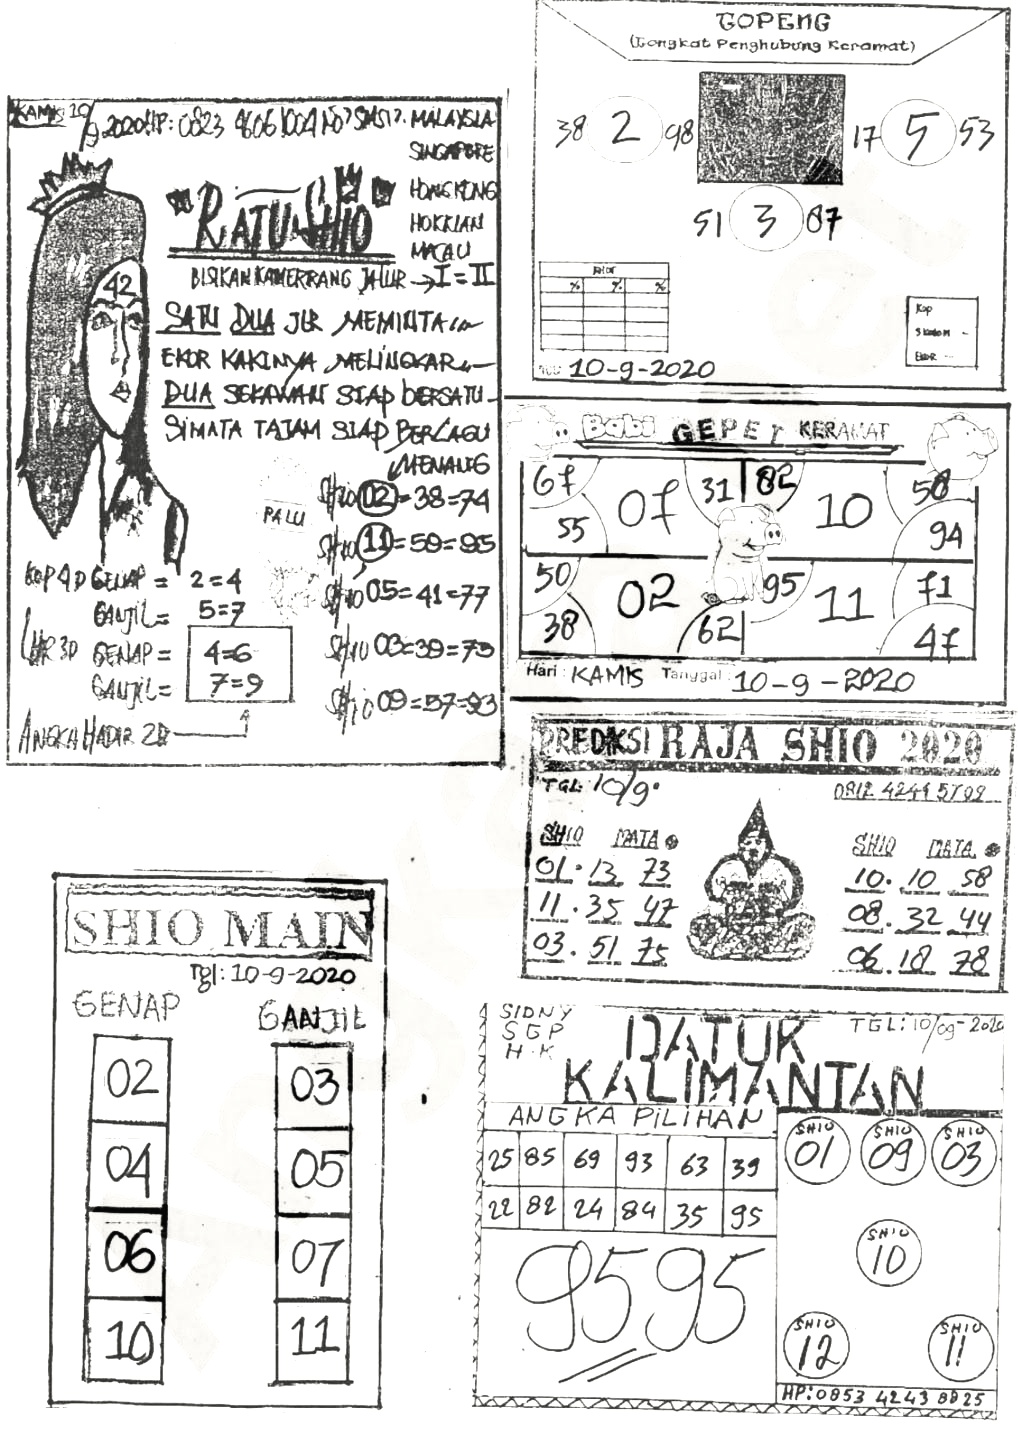 TOPENG
(Tongkat Penghubung Keramat)
38 2 98
17 5 53
51 3 87
% % %
Kop
Ekor
10-9-2020
KAMIS 10/9-2020 HP: 0823 4606 1004 NO? SMS!?
MALAYSIA
SINGAPORE
HONGKONG
HOKKIAN
MACAU
RATU SHIO
BISIKAN KAMERRANG JALUR → I = II
42
SATU DUA JLR MEMINTA
EKOR KAKINYA MELINGKAR
DUA SEKAWAN SIAP BERSATU
SIMATA TAJAM SIAP BERLAGU
MENANG
PALU
SHIO 02 = 38 = 74
SHIO 11 = 59 = 95
SHIO 05 = 41 = 77
SHIO 03 = 39 = 75
SHIO 09 = 57 = 93
KOP 4D GENAP = 2 = 4
GANJIL = 5 = 7
3D GENAP = 4 = 6
GANJIL = 7 = 9
ANGKA HADIR 2D
Babi GEPET KERAMAT
67 07 31 82 10 58
55 94
50 02 95 11 71
38 62 47
Hari : KAMIS Tanggal : 10-9-2020
PREDIKSI RAJA SHIO 2020
TGL: 10/9
SHIO MATA
01. 13 73
11. 35 47
03. 51 75
SHIO MATA
10. 10 58
08. 32 44
06. 18 78
SHIO MAIN
Tgl: 10-9-2020
GENAP GANJIL
02 03
04 05
06 07
10 11
SIDNY
SGP
H.K
DATUK
KALIMANTAN
TGL: 10/09-2020
ANGKA PILIHAN
25 85 69 93 63 39
22 82 24 84 35 95
9595
SHIO 01
SHIO 09
SHIO 03
SHIO 10
SHIO 12
SHIO 11
HP: 0853 4243 8825